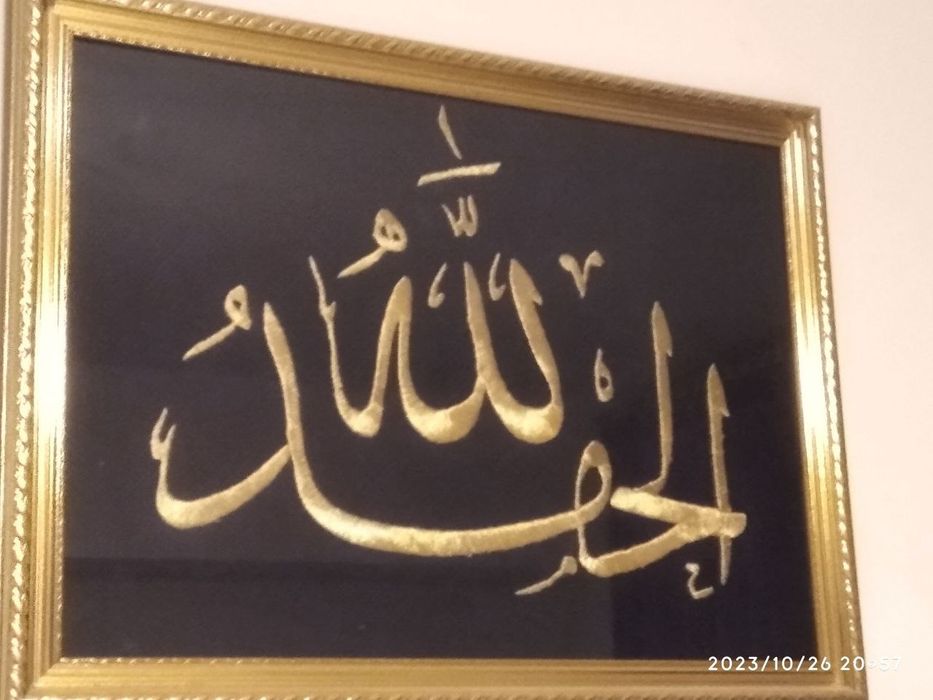 الحمد لله
2023/10/26 20:57